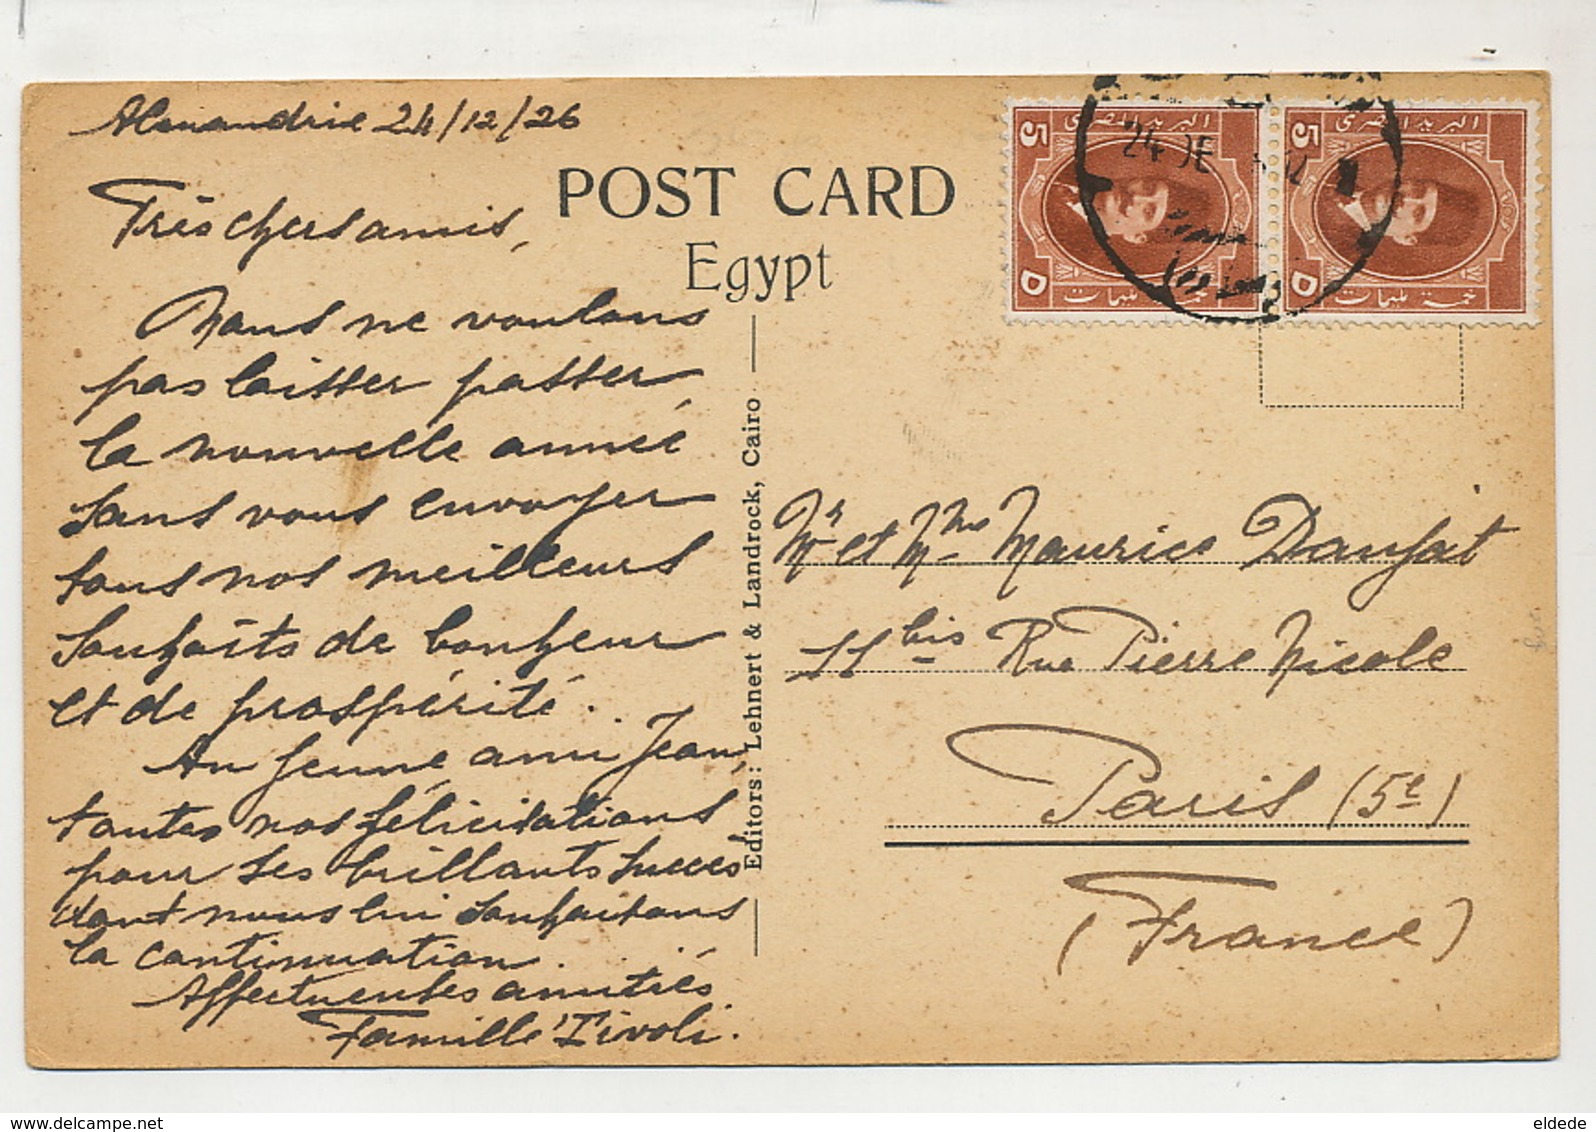 Alexandrie 24/12/26
POST CARD
Egypt
Très chers amis,
Nous ne voulons
pas laisser passer
la nouvelle année
sans vous envoyer
tous nos meilleurs
souhaits de bonheur
et de prospérité.
Au jeune ami Jean,
toutes nos félicitations
pour ses brillants succès
dont nous lui souhaitons
la continuation.
Affectueuses amitiés
Famille Tivoli.
Editors: Lehnert & Landrock, Cairo
5 البريد المصرى
خمسة مليمات
5 البريد المصرى
خمسة مليمات
24 DE
Mr et Mme Maurice
11 bis Rue Pierre Nicole
Paris (5e)
(France)
eldede